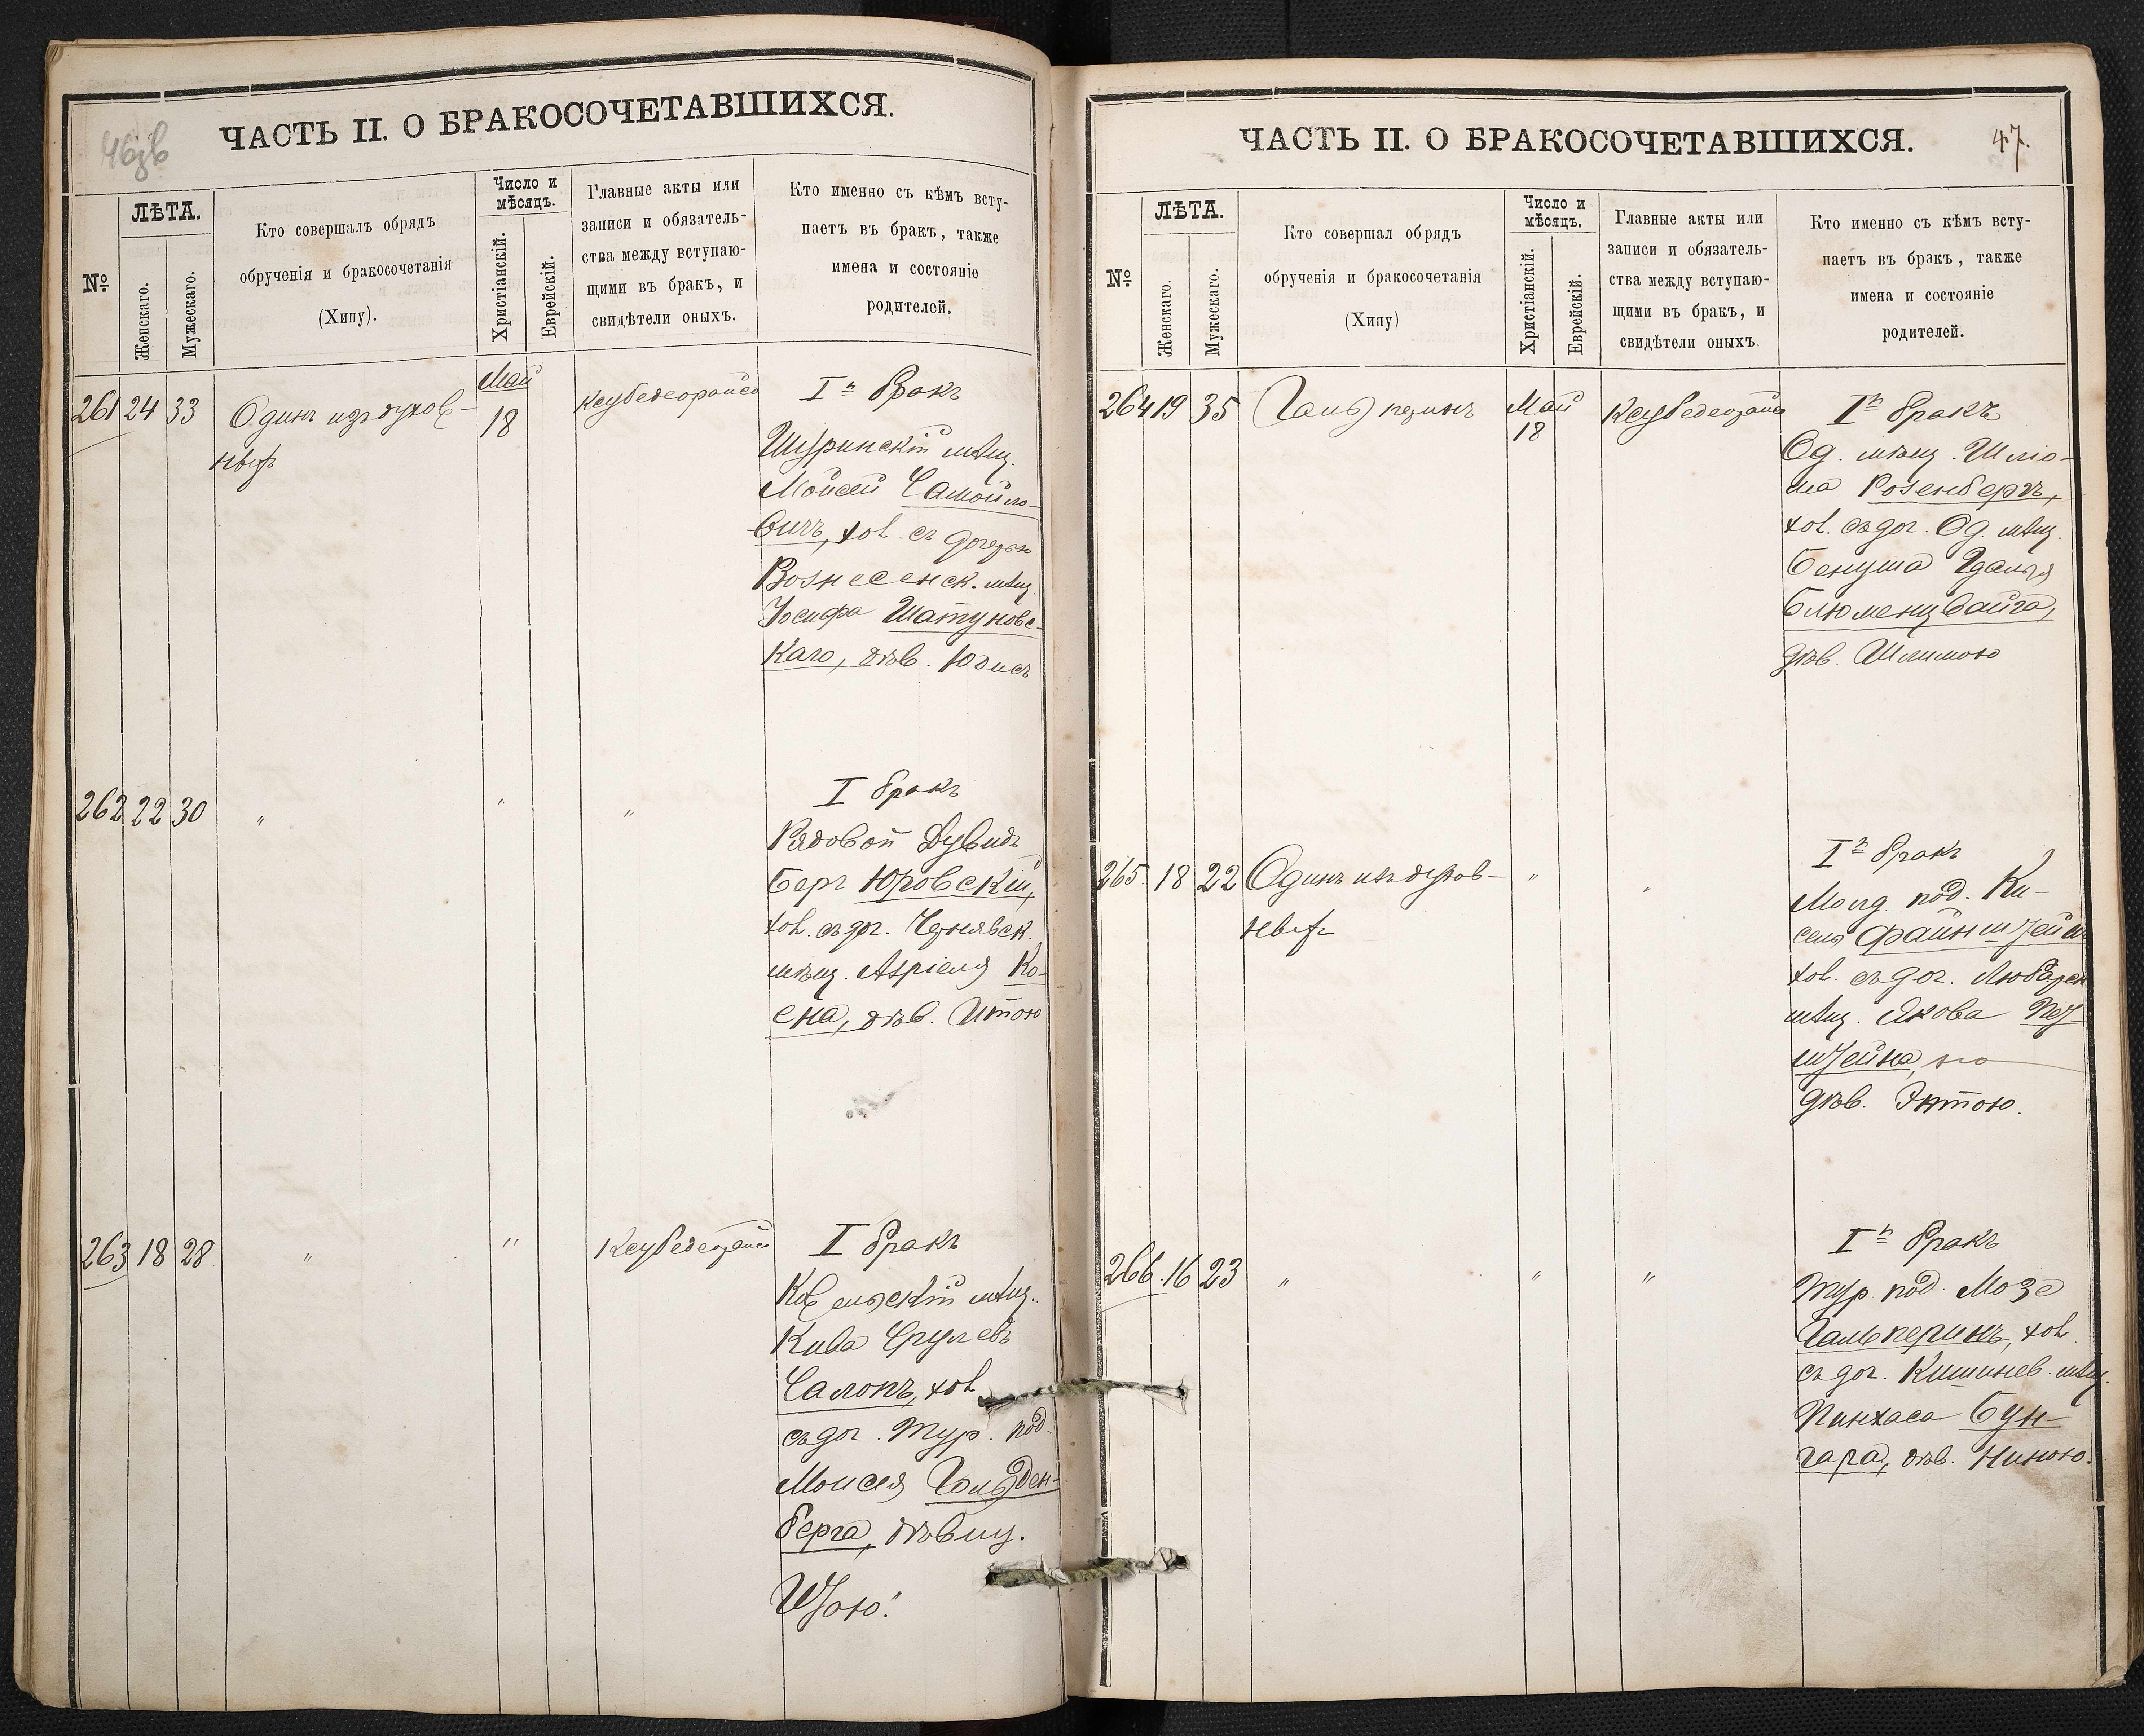 46зв
ЧАСТЬ II. О БРАКОСОЧЕТАВШИХСЯ.
№
ЛѢТА.
Женскаго.
Мужескаго.
Кто совершалъ обрядъ
обрученія и бракосочетанія
(Хипу).
Число и
мѣсяцъ.
Христіанскій.
Еврейскій.
Главные акты или
записи и обязатель-
ства между вступаю-
щими въ бракъ, и
свидѣтели оныхъ.
Кто именно съ кѣмъ всту-
паетъ въ бракъ, также
имена и состояніе
родителей.
261 24 33 Одинъ изъ духов-
Май
18
I й бракъ
мѣщ.
Мойсей Самойло-
вичъ, хол. съ дочерью
Вознесенск. мѣщ.
Іосифа Шатуновс-
каго, дѣв. Юдисъ
262 22 30 " " "
I бракъ
Рядовой Дувидъ
Беръ Юровскій,
хол. съ доч. Чернявск.
мѣщ. Азріеля Ко-
ена, дѣв. Итою
263 18 28 " "
I бракъ
Ковельскій мѣщ.
Кива Срулевъ
Салопъ, хол.
съ доч. Тур. под.
Моисея Гольден-
берга, дѣвиц.
47.
ЧАСТЬ II. О БРАКОСОЧЕТАВШИХСЯ.
№
ЛѢТА.
Женскаго.
Мужескаго.
Кто совершал обрядъ
обрученія и бракосочетанія
(Хипу)
Число и
мѣсяцъ.
Христіанскій.
Еврейскій.
Главные акты или
записи и обязатель-
ства между вступаю-
щими въ бракъ, и
свидѣтели оныхъ.
Кто именно съ кѣмъ всту-
паетъ въ бракъ, также
имена и состояніе
родителей.
264 19 35 Гальперинъ Май
18
I й бракъ
Од. мѣщ. Шліо-
ма Розенбергъ,
хол. съ доч. Од. мѣщ.
Гдалья
Блюменцвайга,
дѣв. Шлимою
265. 18 22 Одинъ изъ духов- " "
I й бракъ
Молд. под. Ки-
селя Файнштейнъ
хол. съ доч. Любарск
мѣщ. Якова
дѣв. Эттою.
266. 16 23 " " "
I й бракъ
Тур. под. Мозе
Гальперинъ, хол.
съ доч. Кишинев. мѣщ.
Пинхаса Бун-
гара, дѣв. Ниною.